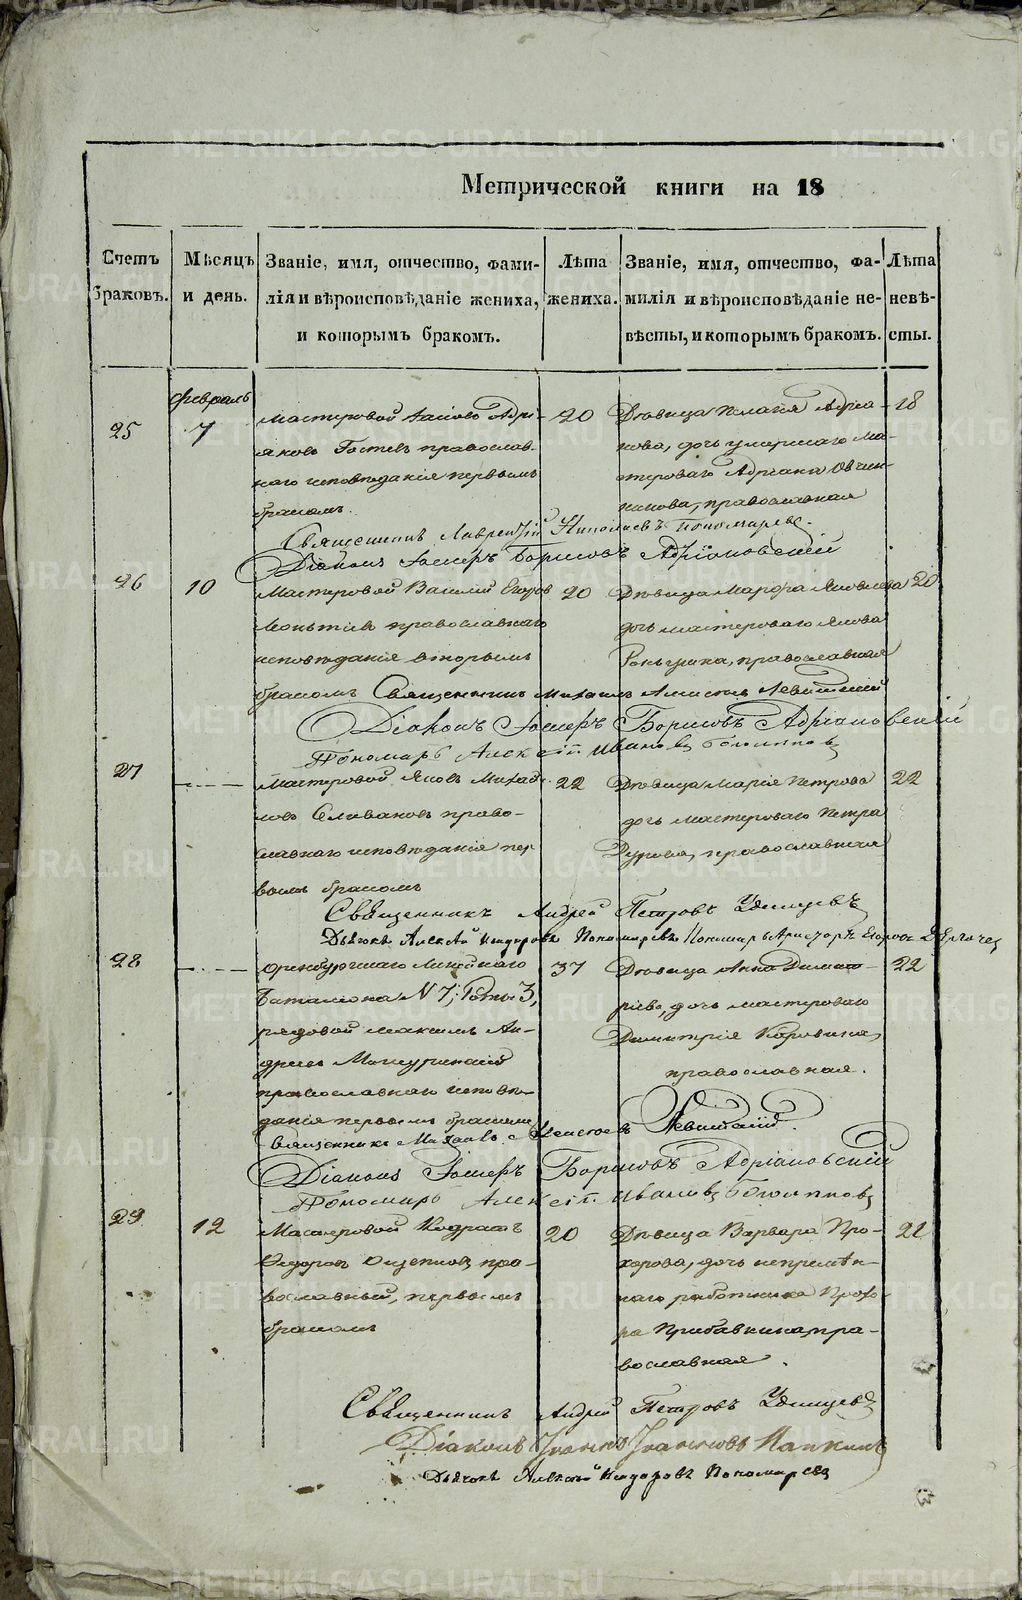 METRIKI.GASO-URAL.RU
Метрической книги на 18
Счетъ браковъ.
Мѣсяцъ и день.
Званіе, имя, отчество, фами-
лія и вѣроисповѣданіе жениха,
и которымъ бракомъ.
Лѣта
жениха.
Званіе, имя, отчество, фа-
милія и вѣроисповѣданіе не-
вѣсты, и которымъ бракомъ.
Лѣта
невѣ-
сты.
февраль
25
7
мастеровой Іаковъ Адрі-
яновъ православ-
наго исповѣданія первымъ
бракомъ.
20
Дѣвица Пелагія Адріа-
нова, дочь умершаго ма-
стероваго Адріана Овчин-
никова, православная
18
Священникъ Лаврентій Николаевъ Пономаревъ.
Діаконъ Іосифъ Борисовъ Адріановскій
26
10
Мастеровой Василій Егоровъ
православнаго
исповѣданія вторымъ
бракомъ
20
Дѣвица Марфа Яковлева
дочь мастероваго Якова
православная
20
Священникъ Михаилъ Алексѣевъ Левитскій
Діаконъ Іосифъ Борисовъ Адріановскій
Пономарь Алексѣй Ивановъ
27
Мастеровой Яковъ Михай-
ловъ Селивановъ право-
славнаго исповѣданія пер
вымъ бракомъ
22
Дѣвица Марія Петрова
дочь мастероваго Петра
православная
22
Священникъ Андрей Петровъ Удинцевъ
Дьячекъ Алексѣй Пономаревъ Пономарь Егоровъ
28
Оренбургскаго Линейнаго
Баталіона N 7, Роты 3,
рядовой Максимъ Ан-
дреевъ
православнаго исповѣ-
данія первымъ бракомъ
37
Дѣвица Анна Димит-
ріева, дочь мастероваго
Димитрія Коровина,
православная.
22
Священникъ Михаилъ Алексѣевъ Левитскій.
Діаконъ Іосифъ Борисовъ Адріановскій
Пономарь Алексѣй Ивановъ
29
12
Мастеровой Кодратъ
Ѳедоровъ Ощепковъ, пра-
вославный, первымъ
бракомъ
20
Дѣвица Варвара Про-
хорова, дочь непремѣн-
наго работника Прохо-
ра Прибавкина, пра-
вославная.
22
Священникъ Андрей Петровъ Удинцевъ
Діаконъ Іоаннъ Іоанновъ
Дьячекъ Алексѣй Пономаревъ